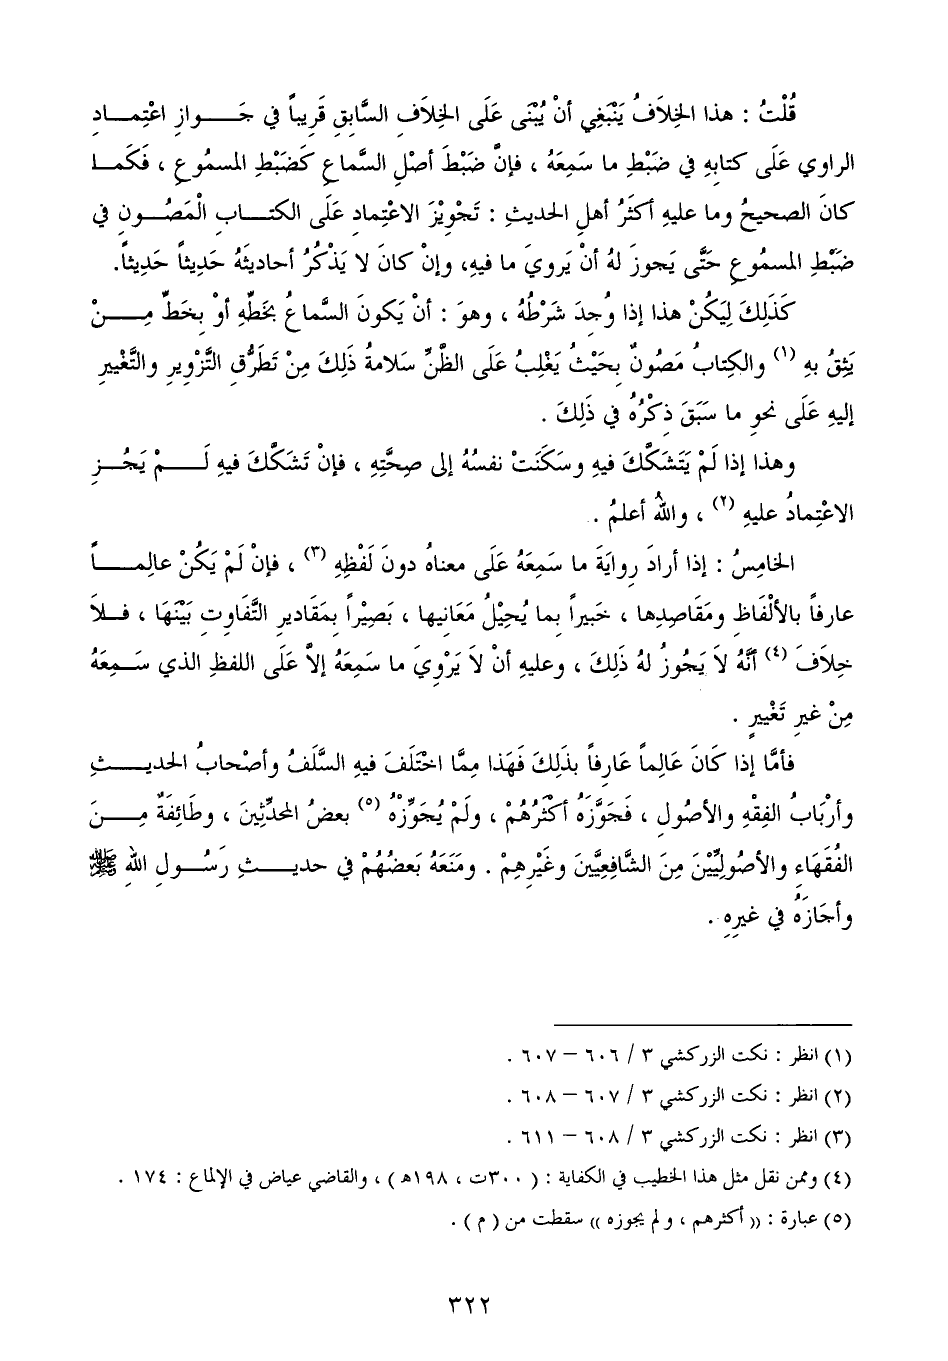 قُلْتُ : هذا الخِلافُ يَنْبَغِي أنْ يُبْنَى عَلَى الخِلافِ السَّابِقِ قَرِيباً في جَوازِ اعْتِمادِ
الراوي عَلَى كتابِهِ في ضَبْطِ ما سَمِعَهُ ، فإنَّ ضَبْطَ أصْلِ السَّماعِ كَضَبْطِ المسموعِ ، فَكَما
كانَ الصحيحُ وما عليهِ أكثَرُ أهلِ الحديثِ : تَجْوِيْزَ الاعْتِمادِ عَلَى الكتابِ الْمَصُونِ في
ضَبْطِ المسمُوعِ حَتَّى يَجوزَ لهُ أنْ يَرويَ ما فيهِ، وإنْ كانَ لا يَذْكُرُ أحاديثَهُ حَدِيثاً حَدِيثاً.
كَذَلِكَ لِيَكُنْ هذا إذا وُجِدَ شَرْطُهُ ، وهوَ : أنْ يَكونَ السَّماعُ بخَطِّهِ أوْ بخَطِّ مِنْ
يَثِقُ بهِ (١) والكِتابُ مَصُونٌ بحَيْثُ يَغْلِبُ عَلَى الظَّنِّ سَلامةُ ذَلِكَ مِنْ تَطَرُّقِ التَّزْويرِ والتَّغْييرِ
إليهِ عَلَى نحوِ ما سَبَقَ ذِكْرُهُ في ذَلِكَ .
وهذا إذا لَمْ يَتَشَكَّكَ فيهِ وسَكَنَتْ نفسُهُ إلى صِحَّتِهِ ، فإنْ تَشَكَّكَ فيهِ لَمْ يَجُزِ
الاعْتِمادُ عليهِ (٢) ، واللهُ أعلمُ .
الخامِسُ : إذا أرادَ رِوايَةَ ما سَمِعَهُ عَلَى معناهُ دونَ لَفْظِهِ (٣) ، فإنْ لَمْ يَكُنْ عالِماً
عارفاً بالألْفَاظِ ومَقَاصِدِها ، خَبيراً بما يُحِيْلُ مَعَانِيها ، بَصِيْراً بمَقَادِيرِ التَّفَاوتِ بَيْنَهَا ، فَلاَ
خِلاَفَ (٤) أنَّهُ لاَ يَجُوزُ لهُ ذَلِكَ ، وعليهِ أنْ لاَ يَرْوِيَ ما سَمِعَهُ إلاَّ عَلَى اللفظِ الذي سَمِعَهُ
مِنْ غيرِ تَغْييرٍ .
فأمَّا إذا كَانَ عَالِماً عَارِفاً بذَلِكَ فَهَذا مِمَّا اخْتَلَفَ فيهِ السَّلَفُ وأصْحابُ الحديثِ
وأرْبَابُ الفِقْهِ والأصُولِ ، فَجَوَّزَهُ أكْثَرُهُمْ ، ولَمْ يُجَوِّزْهُ (٥) بعضُ المحدِّثِينَ ، وطَائِفَةٌ مِنَ
الفُقَهَاءِ والأصُولِيِّيْنَ مِنَ الشَّافِعِيِّينَ وغَيْرِهِمْ . ومَنَعَهُ بَعضُهُمْ في حديثِ رَسُولِ اللهِ ﷺ
وأجَازَهُ في غيرِهِ .
(١) انظر : نكت الزركشي ٣ / ٦٠٦ – ٦٠٧ .
(٢) انظر : نكت الزركشي ٣ / ٦٠٧ – ٦٠٨ .
(٣) انظر : نكت الزركشي ٣ / ٦٠٨ – ٦١١ .
(٤) وممن نقل مثل هذا الخطيب في الكفاية : ( ٣٠٠ت ، ١٩٨ﻫ ) ، والقاضي عياض في الإلماع : ١٧٤ .
(٥) عبارة : (( أكثرهم ، ولم يجوزه )) سقطت من ( م ) .
٣٢٢